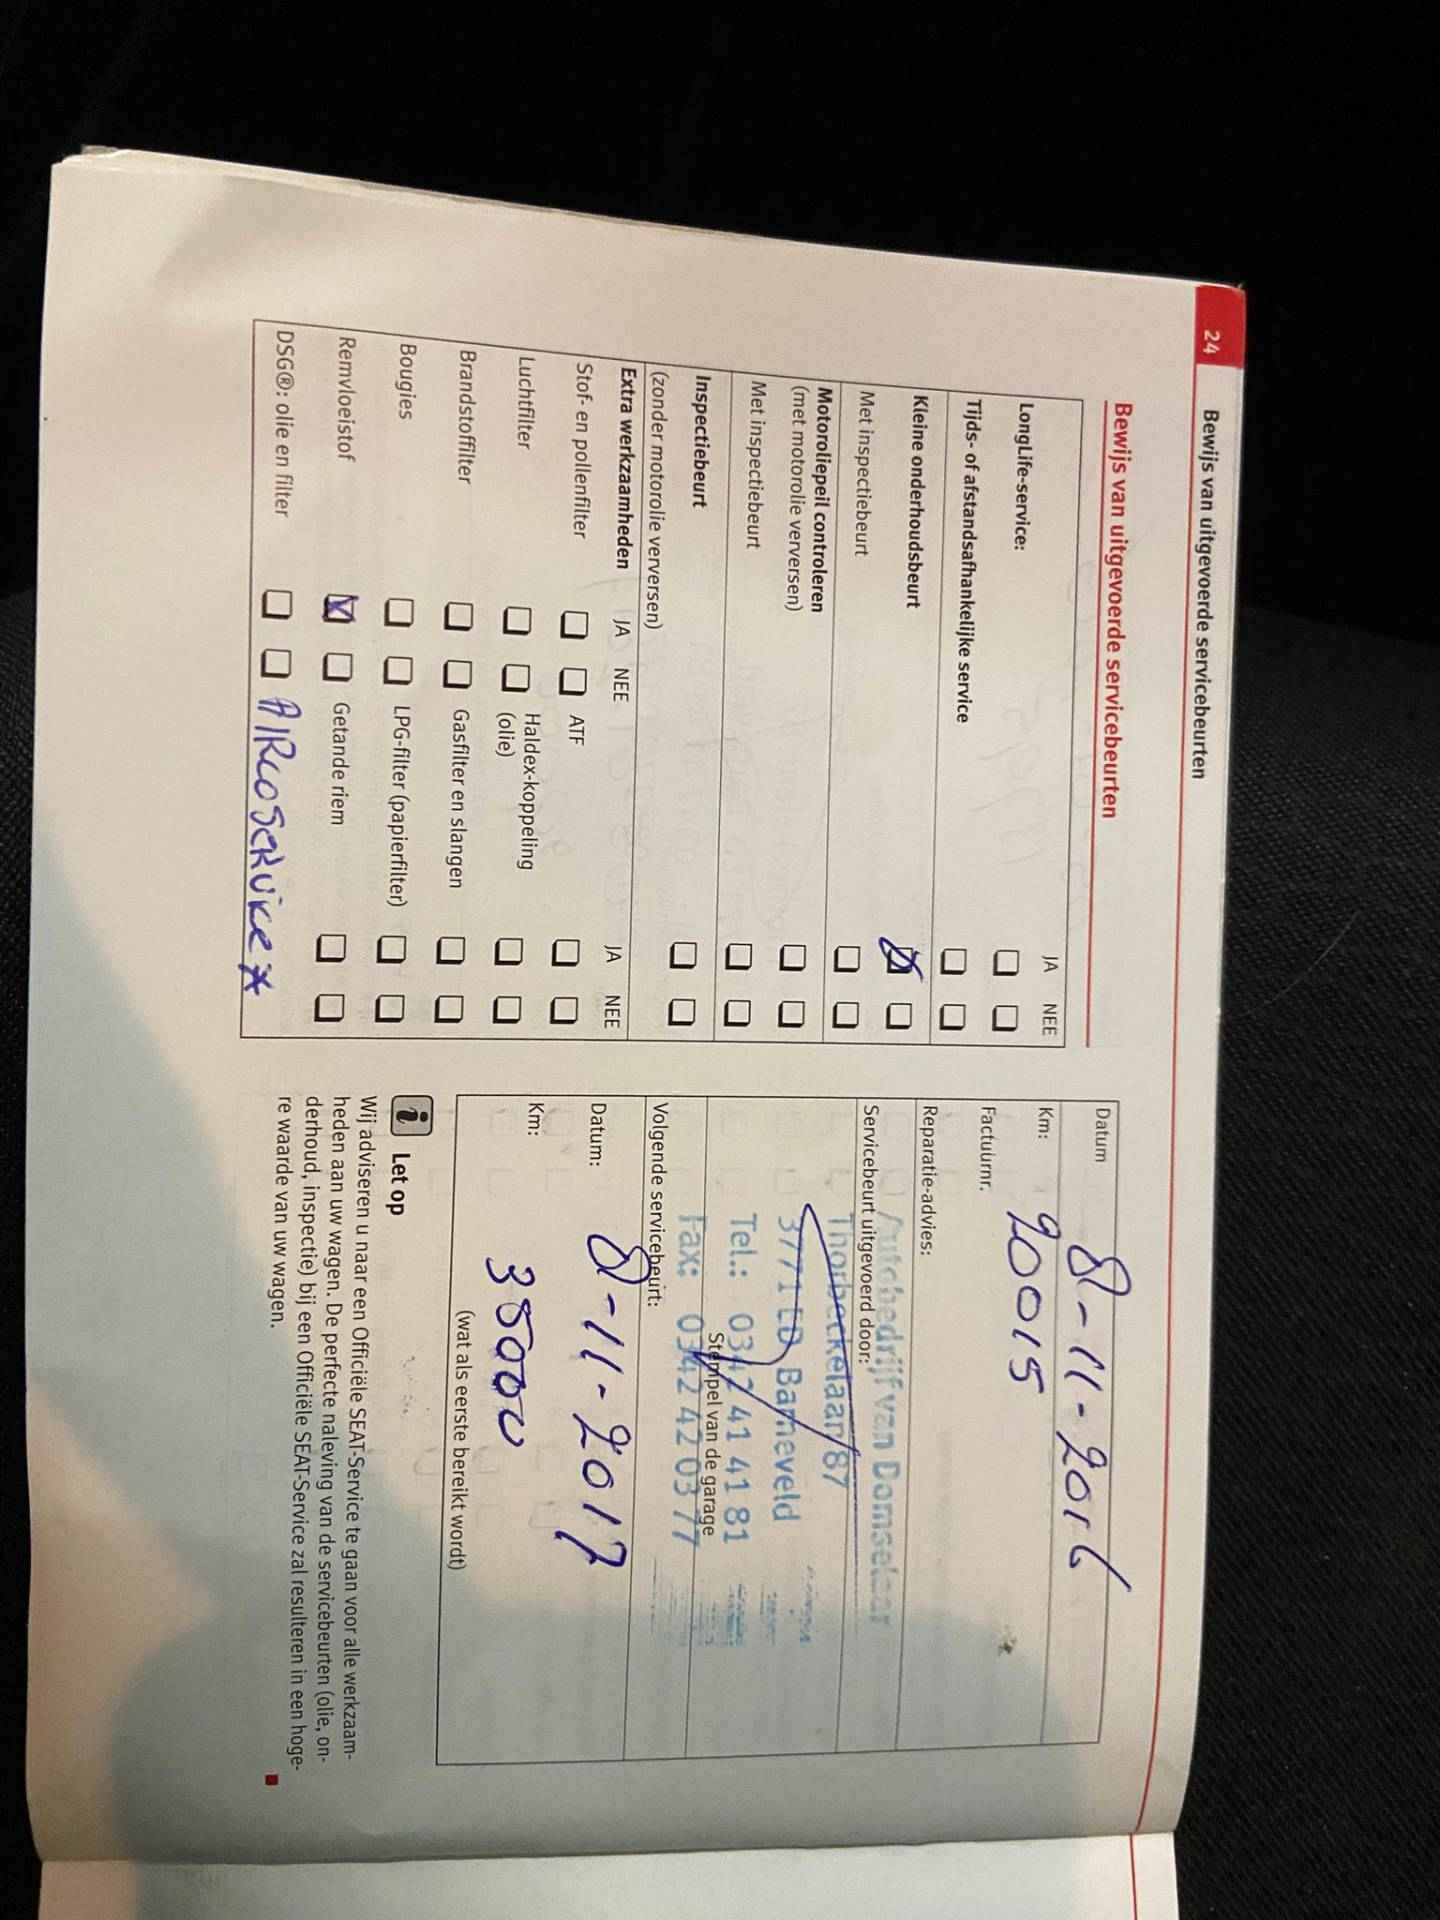 24 Bewijs van uitgevoerde servicebeurten
Bewijs van uitgevoerde servicebeurten
JA NEE
LongLife-service:
Tijds- of afstandsafhankelijke service
Kleine onderhoudsbeurt
Met inspectiebeurt
Motoroliepeil controleren
(met motorolie verversen)
Met inspectiebeurt
Inspectiebeurt
(zonder motorolie verversen)
Extra werkzaamheden JA NEE JA NEE
Stof- en pollenfilter ATF
Luchtfilter Haldex-koppeling
(olie)
Brandstoffilter Gasfilter en slangen
Bougies LPG-filter (papierfilter)
Remvloeistof Getande riem
DSG®: olie en filter AIRCOSERVICE *
Datum 8-11-2016
Km: 20015
Factuurnr.
Reparatie-advies:
Autobedrijf van Domselaar
Servicebeurt uitgevoerd door:
Thorbeckelaan 87
3771 ED Barneveld
Tel.: 0342 41 41 81
Stempel van de garage
Fax: 0342 42 03 77
Volgende servicebeurt:
Datum: 8-11-2017
Km: 35000
(wat als eerste bereikt wordt)
i Let op
Wij adviseren u naar een Officiële SEAT-Service te gaan voor alle werkzaam-
heden aan uw wagen. De perfecte naleving van de servicebeurten (olie, on-
derhoud, inspectie) bij een Officiële SEAT-Service zal resulteren in een hoge-
re waarde van uw wagen.